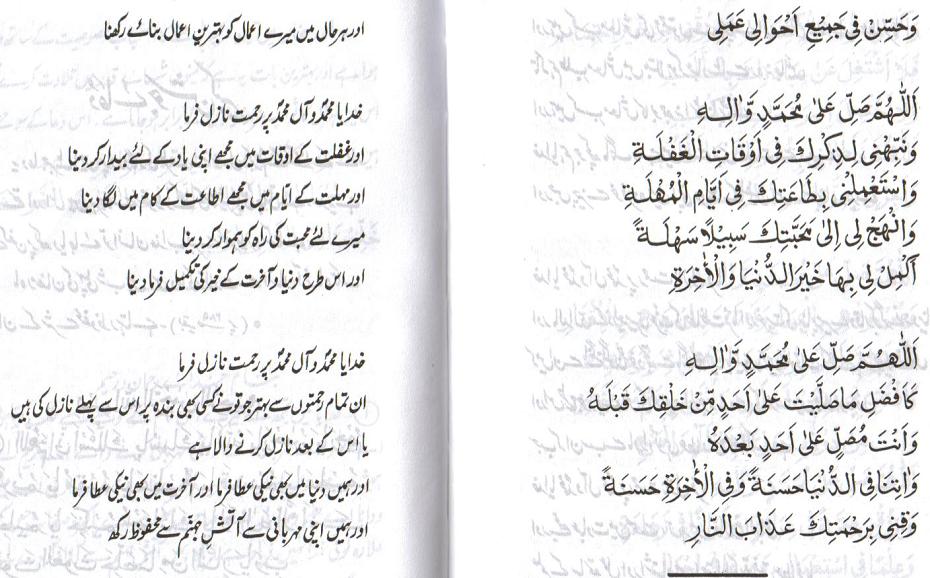 وَحَسِّنْ فِي جَمِيْعِ اَحْوَالِي عَمَلِي
اَللّٰهُمَّ صَلِّ عَلٰى مُحَمَّدٍ وَّاٰلِـهٖ
وَنَبِّهْنِي لِذِكْرِكَ فِي اَوْقَاتِ الْغَفْلَةِ
وَاسْتَعْمِلْنِي بِطَاعَتِكَ فِي اَيَّامِ الْمُهْلَةِ
وَانْهَجْ لِي اِلٰى مَحَبَّتِكَ سَبِيْلًا سَهْلَةً
اَكْمِلْ لِي بِهَا خَيْرَ الدُّنْيَا وَالْاٰخِرَةِ
اَللّٰهُمَّ صَلِّ عَلٰى مُحَمَّدٍ وَّاٰلِـهٖ
كَاَفْضَلِ مَا صَلَّيْتَ عَلٰى اَحَدٍ مِّنْ خَلْقِكَ قَبْلَهٗ
وَاَنْتَ مُصَلٍّ عَلٰى اَحَدٍ بَعْدَهٗ
وَاٰتِنَا فِي الدُّنْيَا حَسَنَةً وَّفِي الْاٰخِرَةِ حَسَنَةً
وَقِنِي بِرَحْمَتِكَ عَذَابَ النَّارِ
اور ہر حال میں میرے اعمال کو بہترین اعمال بنائے رکھنا
خدایا محمدؐ و آل محمدؐ پر رحمت نازل فرما
اور غفلت کے اوقات میں مجھے اپنی یاد کے لئے بیدار کر دینا
اور مہلت کے ایّام میں مجھے اطاعت کے کام میں لگا دینا
میرے لئے محبت کی راہ کو ہموار کر دینا
اور اس طرح دنیا و آخرت کے خیر کی تکمیل فرما دینا
خدایا محمدؐ و آل محمدؐ پر رحمت نازل فرما
ان تمام رحمتوں سے بہتر جو تو نے کسی بھی بندہ پر اس سے پہلے نازل کی ہیں
یا اس کے بعد نازل کرنے والا ہے
اور ہمیں دنیا میں بھی نیکی عطا فرما اور آخرت میں بھی نیکی عطا فرما
اور ہمیں اپنی مہربانی سے آتشِ جہنم سے محفوظ رکھ